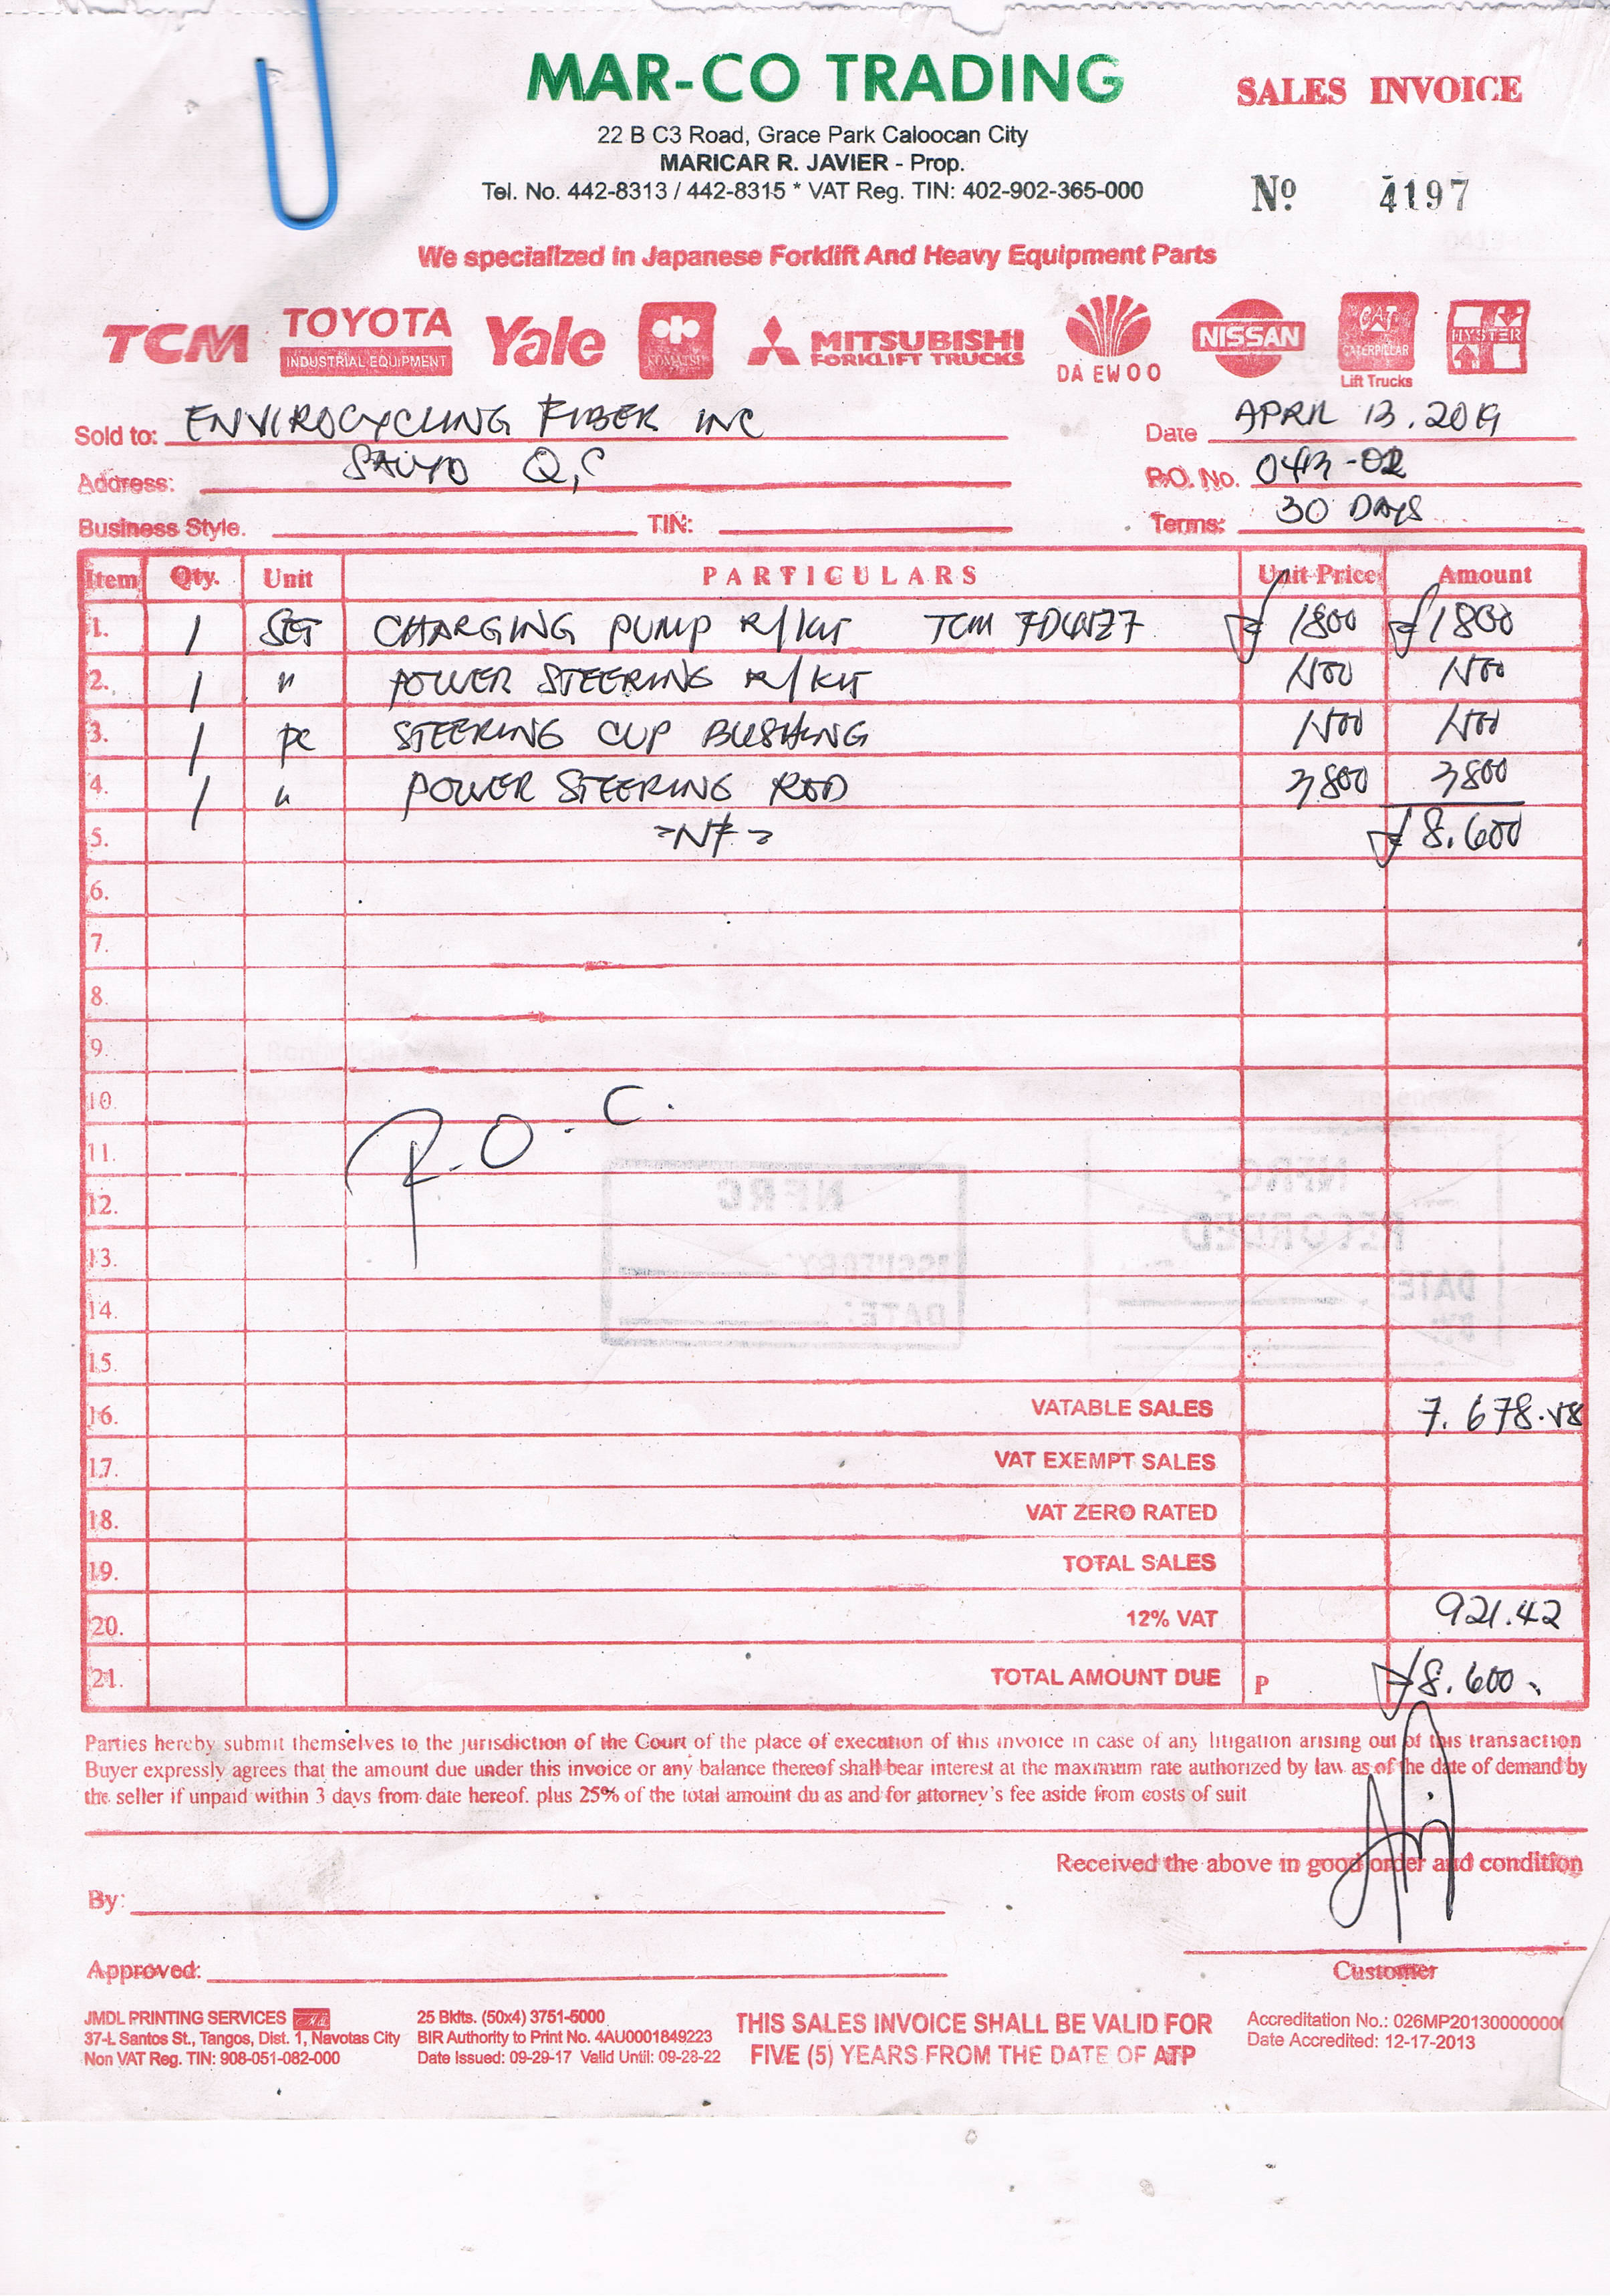 MAR-CO TRADING
SALES INVOICE
22 B C3 Road, Grace Park Caloocan City
MARICAR R. JAVIER - Prop.
Tel. No. 442-8313 / 442-8315 * VAT Reg. TIN: 402-902-365-000
Nº 4197
We specialized in Japanese Forklift And Heavy Equipment Parts
TCM TOYOTA INDUSTRIAL EQUIPMENT Yale KOMATSU MITSUBISHI FORKLIFT TRUCKS DAEWOO NISSAN CAT CATERPILLAR Lift Trucks HYSTER
Sold to: ENVIROCYCLING FIBER INC Date APRIL 13, 2019
Address: SAUYO Q,C P.O. No.
Business Style. TIN: Terms: 30 DAYS
Item Qty. Unit PARTICULARS Unit Price Amount
1. 1 SET CHARGING PUMP R/KIT TCM 1800 1800
2. 1 " POWER STEERING R/KIT
3. 1 pc STEERING CUP BUSHING
4. 1 " POWER STEERING ROD 3,800 3,800
5. 8.600
6.
7.
8.
9.
10.
11. P.O.C.
12.
13.
14.
15.
16. VATABLE SALES
17. VAT EXEMPT SALES
18. VAT ZERO RATED
19. TOTAL SALES
20. 12% VAT 921.42
21. TOTAL AMOUNT DUE P 8.600
Parties hereby submit themselves to the jurisdiction of the Court of the place of execution of this invoice in case of any litigation arising out of this transaction
Buyer expressly agrees that the amount due under this invoice or any balance thereof shall bear interest at the maximum rate authorized by law as of the date of demand by
the seller if unpaid within 3 days from date hereof. plus 25% of the total amount du as and for attorney's fee aside from costs of suit
Received the above in good order and condition
By:
Approved: Customer
JMDL PRINTING SERVICES
37-L Santos St., Tangos, Dist. 1, Navotas City
Non VAT Reg. TIN: 908-051-082-000
25 Bklts. (50x4) 3751-5000
BIR Authority to Print No. 4AU0001849223
Date Issued: 09-29-17 Valid Until: 09-28-22
THIS SALES INVOICE SHALL BE VALID FOR
FIVE (5) YEARS FROM THE DATE OF ATP
Accreditation No.: 026MP2013000000
Date Accredited: 12-17-2013